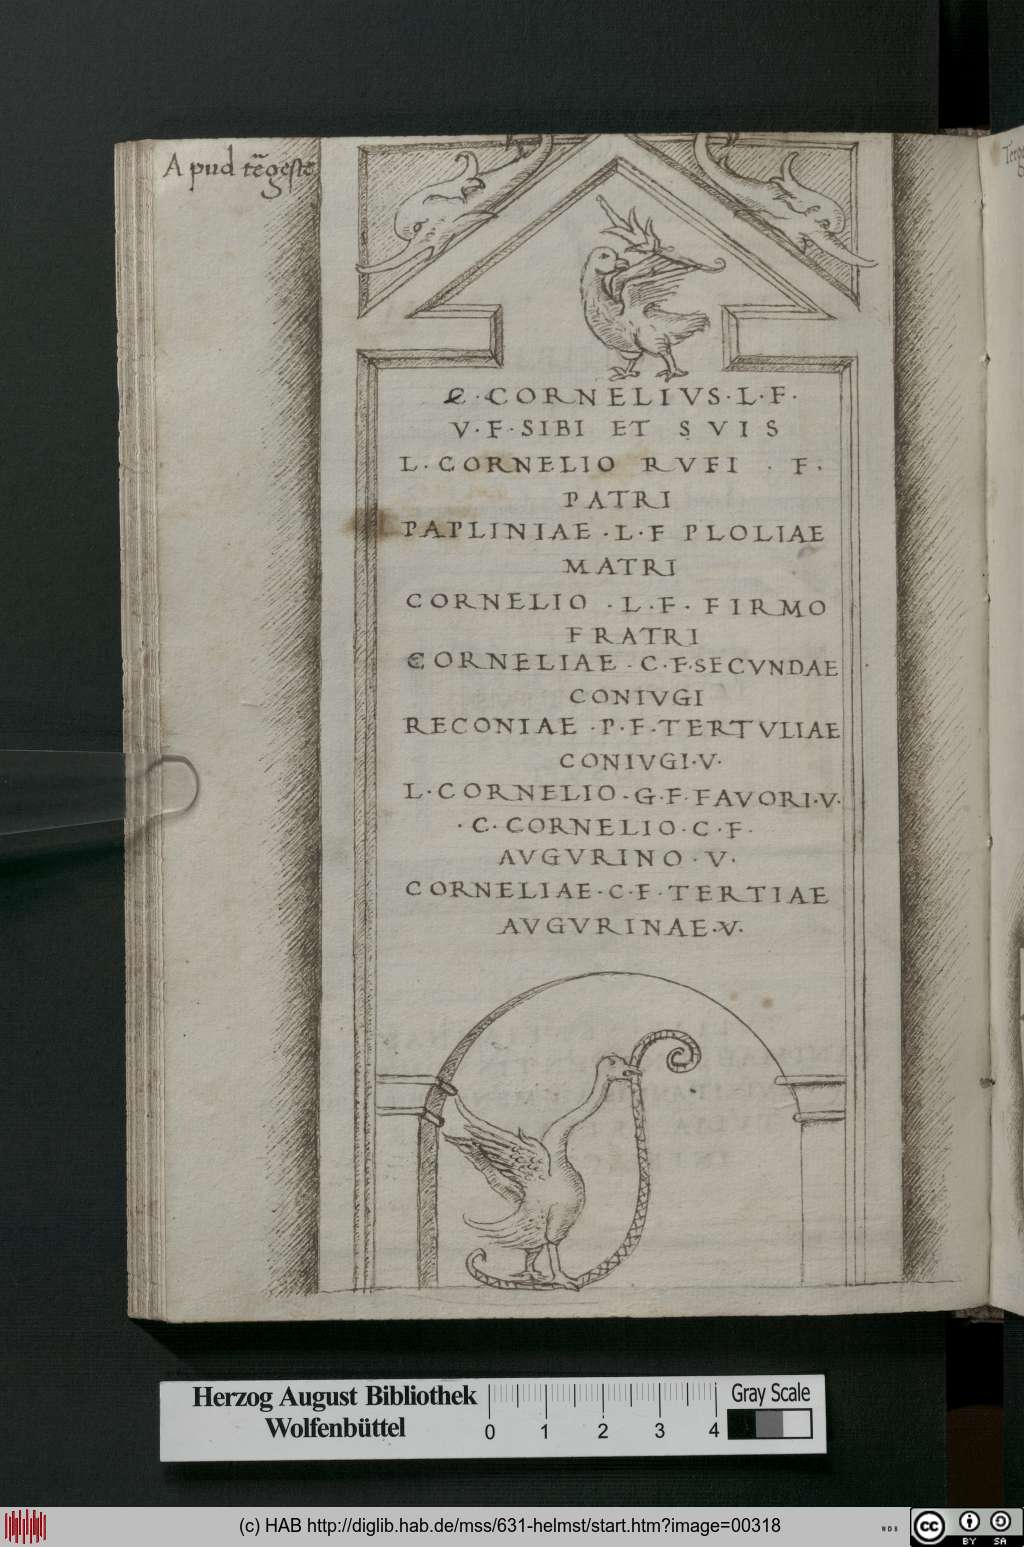 Apud tẽgeste
C · CORNELIVS · L · F ·
V · F · SIBI ET SVIS
L · CORNELIO RVFI · F ·
PATRI
PAPLINIAE · L · F PLOLIAE
MATRI
CORNELIO · L · F · FIRMO
FRATRI
CORNELIAE · C · F · SECVNDAE
CONIVGI
RECONIAE · P · F · TERTVLIAE
CONIVGI · V ·
L · CORNELIO · G · F · FAVORI · V ·
· C · CORNELIO · C · F ·
AVGVRINO · V ·
CORNELIAE · C · F · TERTIAE
AVGVRINAE · V ·
Herzog August Bibliothek
Wolfenbüttel
0 1 2 3 4
Gray Scale
(c) HAB http://diglib.hab.de/mss/631-helmst/start.htm?image=00318
WDB
cc BY SA